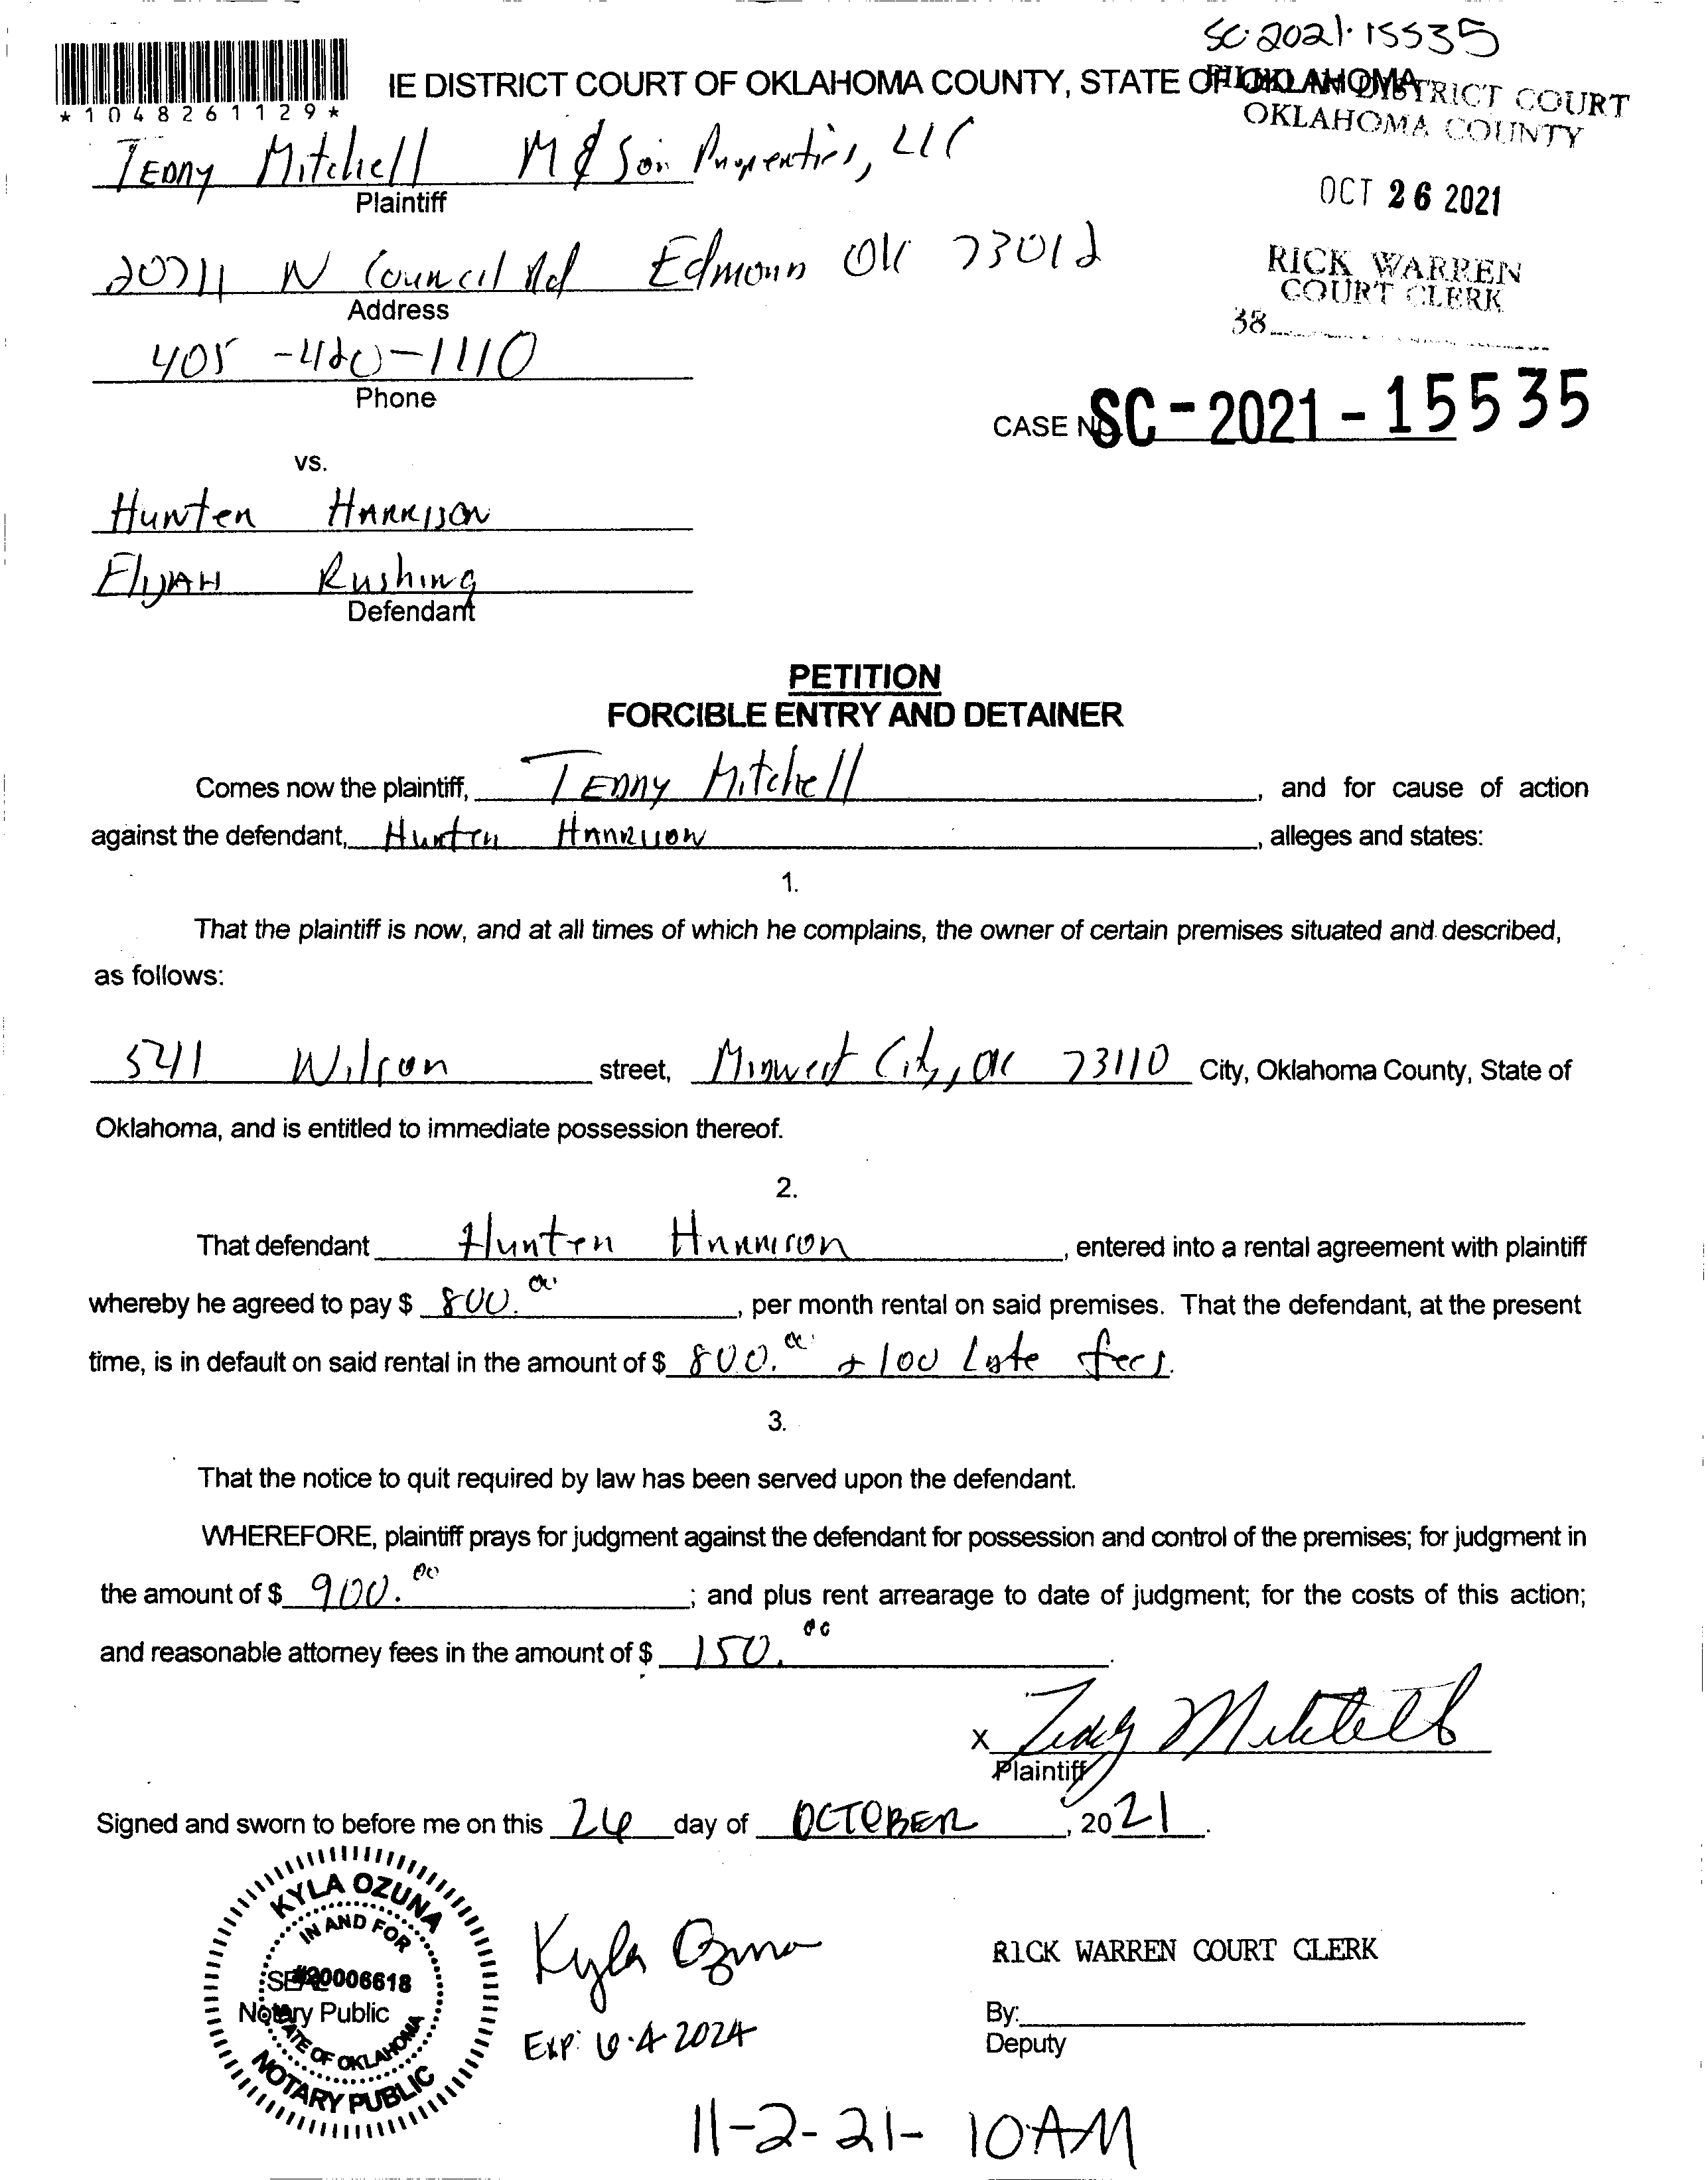 SC-2021-15535
IE DISTRICT COURT OF OKLAHOMA COUNTY, STATE OF OKLAHOMA
FILED IN DISTRICT COURT
OKLAHOMA COUNTY
*1048261129*
Mitchell M & Son Properties, LLC
Plaintiff
OCT 26 2021
20711 N Council Rd Edmond OK 73012
Address
RICK WARREN
COURT CLERK
38
405-420-1110
Phone
CASE NO. SC-2021-15535
vs.
Hunter Harrison
Elijah Rushing
Defendant
PETITION
FORCIBLE ENTRY AND DETAINER
Comes now the plaintiff, Mitchell, and for cause of action
against the defendant, Hunter Harrison, alleges and states:
1.
That the plaintiff is now, and at all times of which he complains, the owner of certain premises situated and described,
as follows:
Wilson street, Midwest City, OK 73110 City, Oklahoma County, State of
Oklahoma, and is entitled to immediate possession thereof.
2.
That defendant Hunter Harrison, entered into a rental agreement with plaintiff
whereby he agreed to pay $ 800.00, per month rental on said premises. That the defendant, at the present
time, is in default on said rental in the amount of $ 800.00 + 100 Late fees.
3.
That the notice to quit required by law has been served upon the defendant.
WHEREFORE, plaintiff prays for judgment against the defendant for possession and control of the premises; for judgment in
the amount of $ 900.00; and plus rent arrearage to date of judgment; for the costs of this action;
and reasonable attorney fees in the amount of $ 150.00.
X Mitchell
Plaintiff
Signed and sworn to before me on this 26 day of OCTOBER, 2021.
KYLA OZUNA
IN AND FOR
SEAL
#20006618
Notary Public
STATE OF OKLAHOMA
NOTARY PUBLIC
Kyla Ozuna
Exp: 6-4-2024
RICK WARREN COURT CLERK
By:
Deputy
11-2-21- 10AM